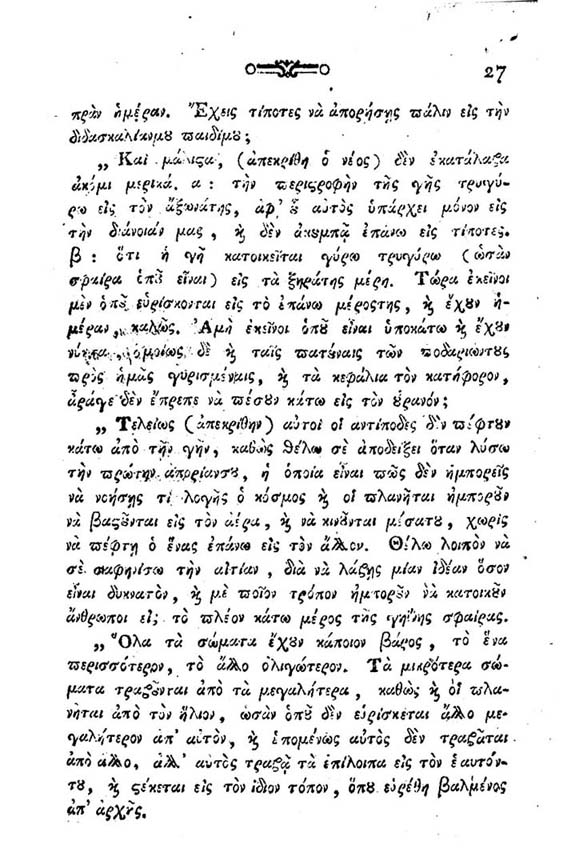 27
πρὰν ἡμέραν. Ἔχεις τίποτες νὰ ἀπορήσῃς πάλιν εἰς τὴν
διδασκαλίανμου παιδίμου;
„ Καὶ μάλιςα, (ἀπεκρίθη ὁ νέος) δὲν ἐκατάλαβα
ἀκόμι μερικά. α : τὴν περιςροφὴν τῆς γῆς τριγύ-
ρω εἰς τὸν ἄξωνάτης, ἀφ' ȣ̓ αὐτὸς ὑπάρχει μόνον εἰς
τὴν διάνοιάν μας, ϗ δὲν ἀκȣμπᾷ ἐπάνω εἰς τίποτες.
β : ὅτι ἡ γῆ κατοικεῖται γύρω τριγύρω (ὡσὰν
σφαῖρα ὁπȣ̃ εἶναι) εἰς τὰ ξηράτης μέρη. Τώρα ἐκεῖνοι
μὲν ὁπȣ̃ εὑρίσκονται εἰς τὸ ἐπάνω μέροςτης, ϗ ἔχȣν ἡ-
μέραν, καλῶς. Ἀμὴ ἐκεῖνοι ὁπȣ̃ εἶναι ὑποκάτω ϗ ἔχȣν
νύκτα, ὁμοίως δὲ ϗ ταῖς πατȣ́ναις τῶν ποδαριῶντȣς
πρὸς ἡμᾶς γυρισμέναις, ϗ τὰ κεφάλια τὸν κατήφορον,
ἆράγε δὲν ἔπρεπε νὰ πέσȣν κάτω εἰς τὸν ȣ̓ρανόν;
„ Τελείως (ἀπεκρίθην) αὐτοὶ οἱ ἀντίποδες δὲν πέφτȣν
κάτω ἀπὸ τὴν γῆν, καθὼς θέλω σὲ ἀποδείξει ὅταν λύσω
τὴν πρώτην ἀπορίανσȣ, ἡ ὁποία εἶναι πῶς δὲν ἠμπορεῖς
νὰ νοήσῃς τί λογῆς ὁ κόσμος ϗ οἱ πλανῆται ἠμπορȣ̃ν
νὰ βαςȣ̃νται εἰς τὸν ἀέρα, ϗ νὰ κινȣ̃νται μέσατȣ, χωρὶς
νὰ πέφτῃ ὁ ἕνας ἐπάνω εἰς τὸν ἄλλον. Θέλω λοιπὸν νὰ
σὲ σαφηνίσω τὴν αἰτίαν, διὰ νὰ λάβῃς μίαν ἰδέαν ὅσον
εἶναι δυκνατὸν, ϗ μὲ ποῖον τρόπον ἠμπορȣ̃ν νὰ κατοικȣ̃ν
ἄνθρωποι εἰς τὸ πλέον κάτω μέρος τῆς γηΐνης σφαίρας.
„ Ὅλα τὰ σώματα ἔχȣν κάποιον βάρος, τὸ ἕνα
περισσότερον, τὸ ἄλλο ὀλιγώτερον. Τὰ μικρότερα σώ-
ματα τραβȣ̃νται ἀπὸ τὰ μεγαλήτερα, καθὼς ϗ οἱ πλα-
νῆται ἀπὸ τὸν ἥλιον, ὡσὰν ὁπȣ̃ δὲν εὑρίσκεται ἄλλο με-
γαλήτερον ἀπ' αὐτὸν, ϗ ἑπομένως αὐτὸς δὲν τραβᾶται
ἀπὸ ἄλλο, ἀλλ' αὐτὸς τραβᾷ τὰ ἐπίλοιπα εἰς τὸν ἑαυτόν-
τȣ, ϗ ςέκεται εἰς τὸν ἴδιον τόπον, ὅπȣ εὑρέθη βαλμένος
ἀπ' ἀρχῆς.